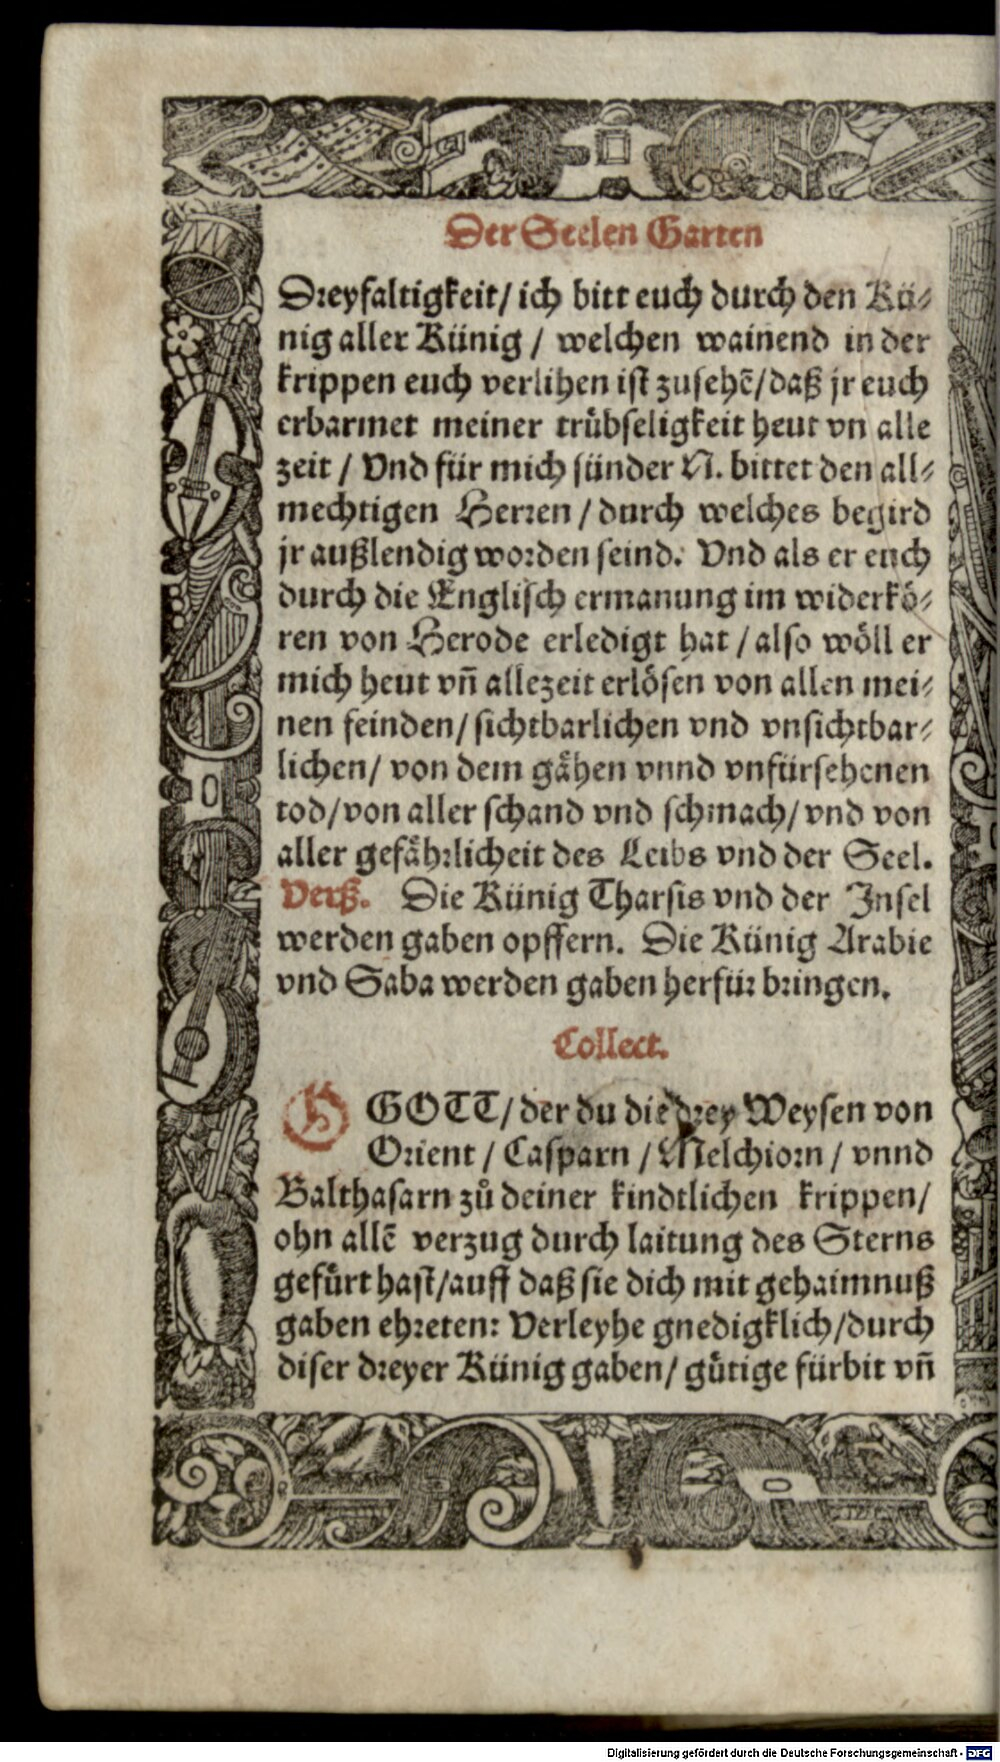 Der Seelen Garten
Dreyfaltigkeit/ ich bitt euch durch den Kü⸗
nig aller Künig / welchen wainend in der
krippen euch verlihen ist zusehē/daß jr euch
erbarmet meiner trůbseligkeit heut vn alle
zeit / Vnd für mich sünder N. bittet den all⸗
mechtigen Herren / durch welches begird
jr außlendig worden seind. Vnd als er euch
durch die Englisch ermanung im widerkö⸗
ren von Herode erledigt hat / also wöll er
mich heut vñ allezeit erlösen von allen mei⸗
nen feinden/ sichtbarlichen vnd vnsichtbar⸗
lichen/ von dem gähen vnnd vnfürsehenen
tod/von aller schand vnd schmach/ vnd von
aller gefährlicheit des Leibs vnd der Seel.
Verß. Die Künig Tharsis vnd der Insel
werden gaben opffern. Die Künig Arabie
vnd Saba werden gaben herfür bringen.
Collect.
O GOTT/ der du die drey Weysen von
Orient / Casparn / Melchiorn / vnnd
Balthasarn zů deiner kindtlichen krippen/
ohn allē verzug durch laitung des Sterns
gefürt hast/auff daß sie dich mit gehaimnuß
gaben ehreten: Verleyhe gnedigklich/durch
diser dreyer Künig gaben/ gütige fürbit vñ
Digitalisierung gefördert durch die Deutsche Forschungsgemeinschaft - DFG